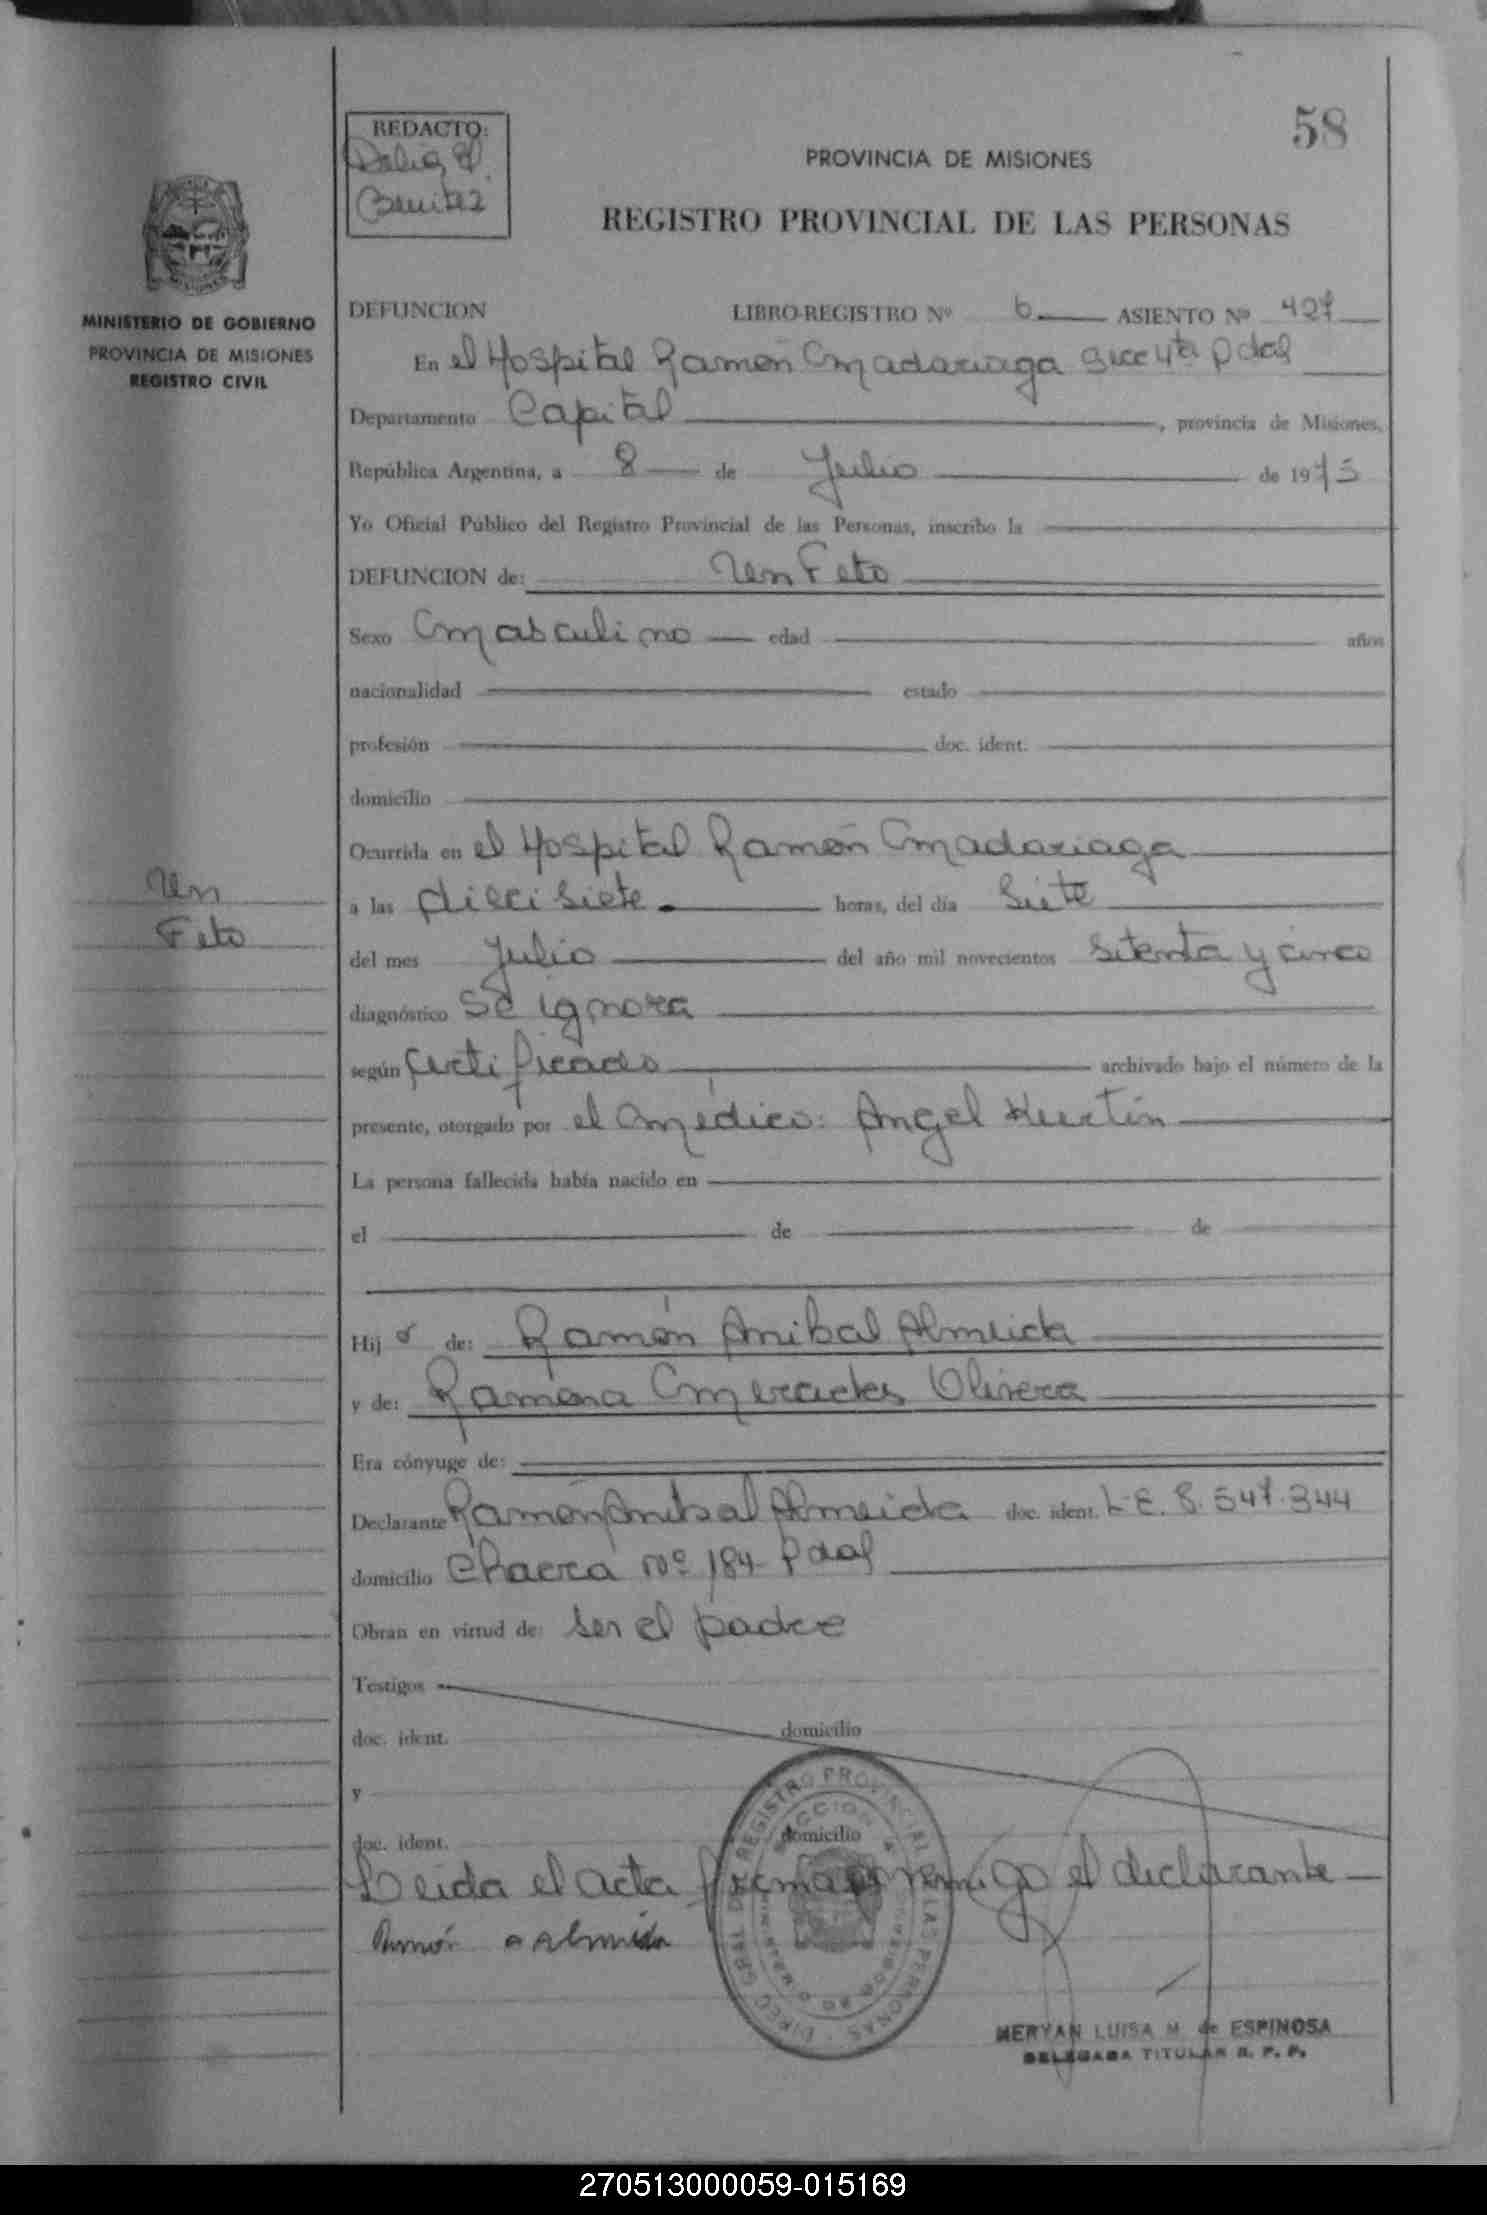 58
REDACTO:
Delia H.
Benitez
PROVINCIA DE MISIONES
REGISTRO PROVINCIAL DE LAS PERSONAS
MINISTERIO DE GOBIERNO
PROVINCIA DE MISIONES
REGISTRO CIVIL
DEFUNCION LIBRO-REGISTRO Nº 6 ASIENTO Nº 427
En el Hospital Ramón Madariaga Secc 4ta Pdas
Departamento Capital, provincia de Misiones,
República Argentina, a 8 de Julio de 1975
Yo Oficial Público del Registro Provincial de las Personas, inscribo la
DEFUNCION de: Un Feto
Sexo Masculino edad años
nacionalidad estado
profesión doc. ident.
domicilio
Ocurrida en el Hospital Ramón Madariaga
Un
Feto
a las diecisiete horas, del día Siete
del mes Julio del año mil novecientos Setenta y cinco
diagnóstico Se ignora
según Certificado archivado bajo el número de la
presente, otorgado por el Médico: Angel
La persona fallecida había nacido en
el de de
Hij o de: Ramón Anibal Almeida
y de: Ramona Mercedes Olivera
Era cónyuge de:
Declarante Ramón Anibal Almeida doc. ident. L.E. 8.547.344
domicilio Chacra Nº 184 Pdas
Obran en virtud de: Ser el padre
Testigos
doc. ident. domicilio
y
doc. ident. domicilio
Leida el acta firma conmigo el declarante
Ramón A Almeida
DIREC. GRAL. DE REGISTRO PROVINCIAL DE LAS PERSONAS
MERYAN LUISA M. de ESPINOSA
DELEGADA TITULAR R. P. P.
270513000059-015169